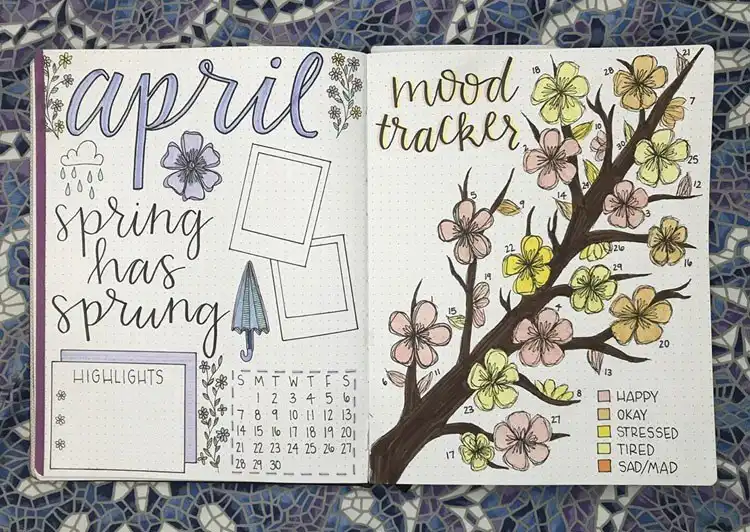 april
spring
has
sprung
HIGHLIGHTS
S M T W T F S
1 2 3 4 5 6
7 8 9 10 11 12 13
14 15 16 17 18 19 20
21 22 23 24 25 26 27
28 29 30
mood
tracker
21
18
28
7
10
30
2
25
24
12
5
9
14
3
26
16
22
19
29
15
20
13
6
11
8
23
27
17
HAPPY
OKAY
STRESSED
TIRED
SAD/MAD